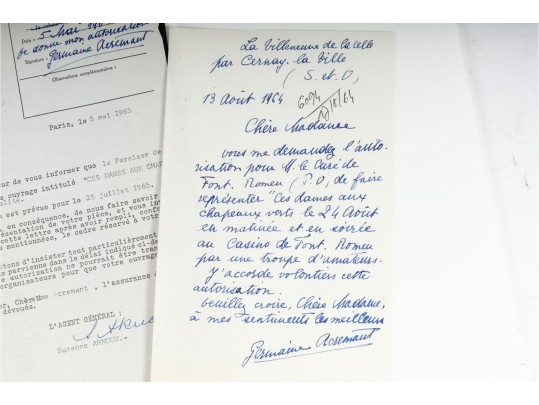 Date : 5 Mai 196
je donne mon autorisation
Signature : Germaine Acremant
Observations complémentaires :
Paris, le 5 mai 1965
ur de vous informer que la Paroisse de
e ouvrage intitulé "CES DAMES AUX CHAP
est prévue pour le 25 juillet 1965.
, en conséquence, de nous faire savoir
résentation de votre pièce, et vous in
cette lettre après avoir rempli, confor
s mentionnées, le cadre réservé à votre
itons d'insister tout particulièrement
parvienne dans le délai indiqué ci-de
e autorisation ne pourrait être
organisateurs pour que votre ouvrage
er, Chère Mme Acremant, l'assurance d
dévoués.
L'AGENT GÉNÉRAL :
Suzanne ARNOUX.-
La Villeneuve de la Celle
par Cernay-la-Ville
(S. et O)
13 Août 1964
Chère Madame
vous me demandez l'auto-
risation pour M. le Curé de
Font. Romeu (P.O) de faire
représenter "Ces dames aux
chapeaux verts le 24 Août
en matinée et en soirée
au Casino de Font. Romeu
par une troupe d'amateurs.
J'accorde volontiers cette
autorisation.
Veuillez croire, Chère Madame,
à mes sentiments les meilleurs
Germaine Acremant